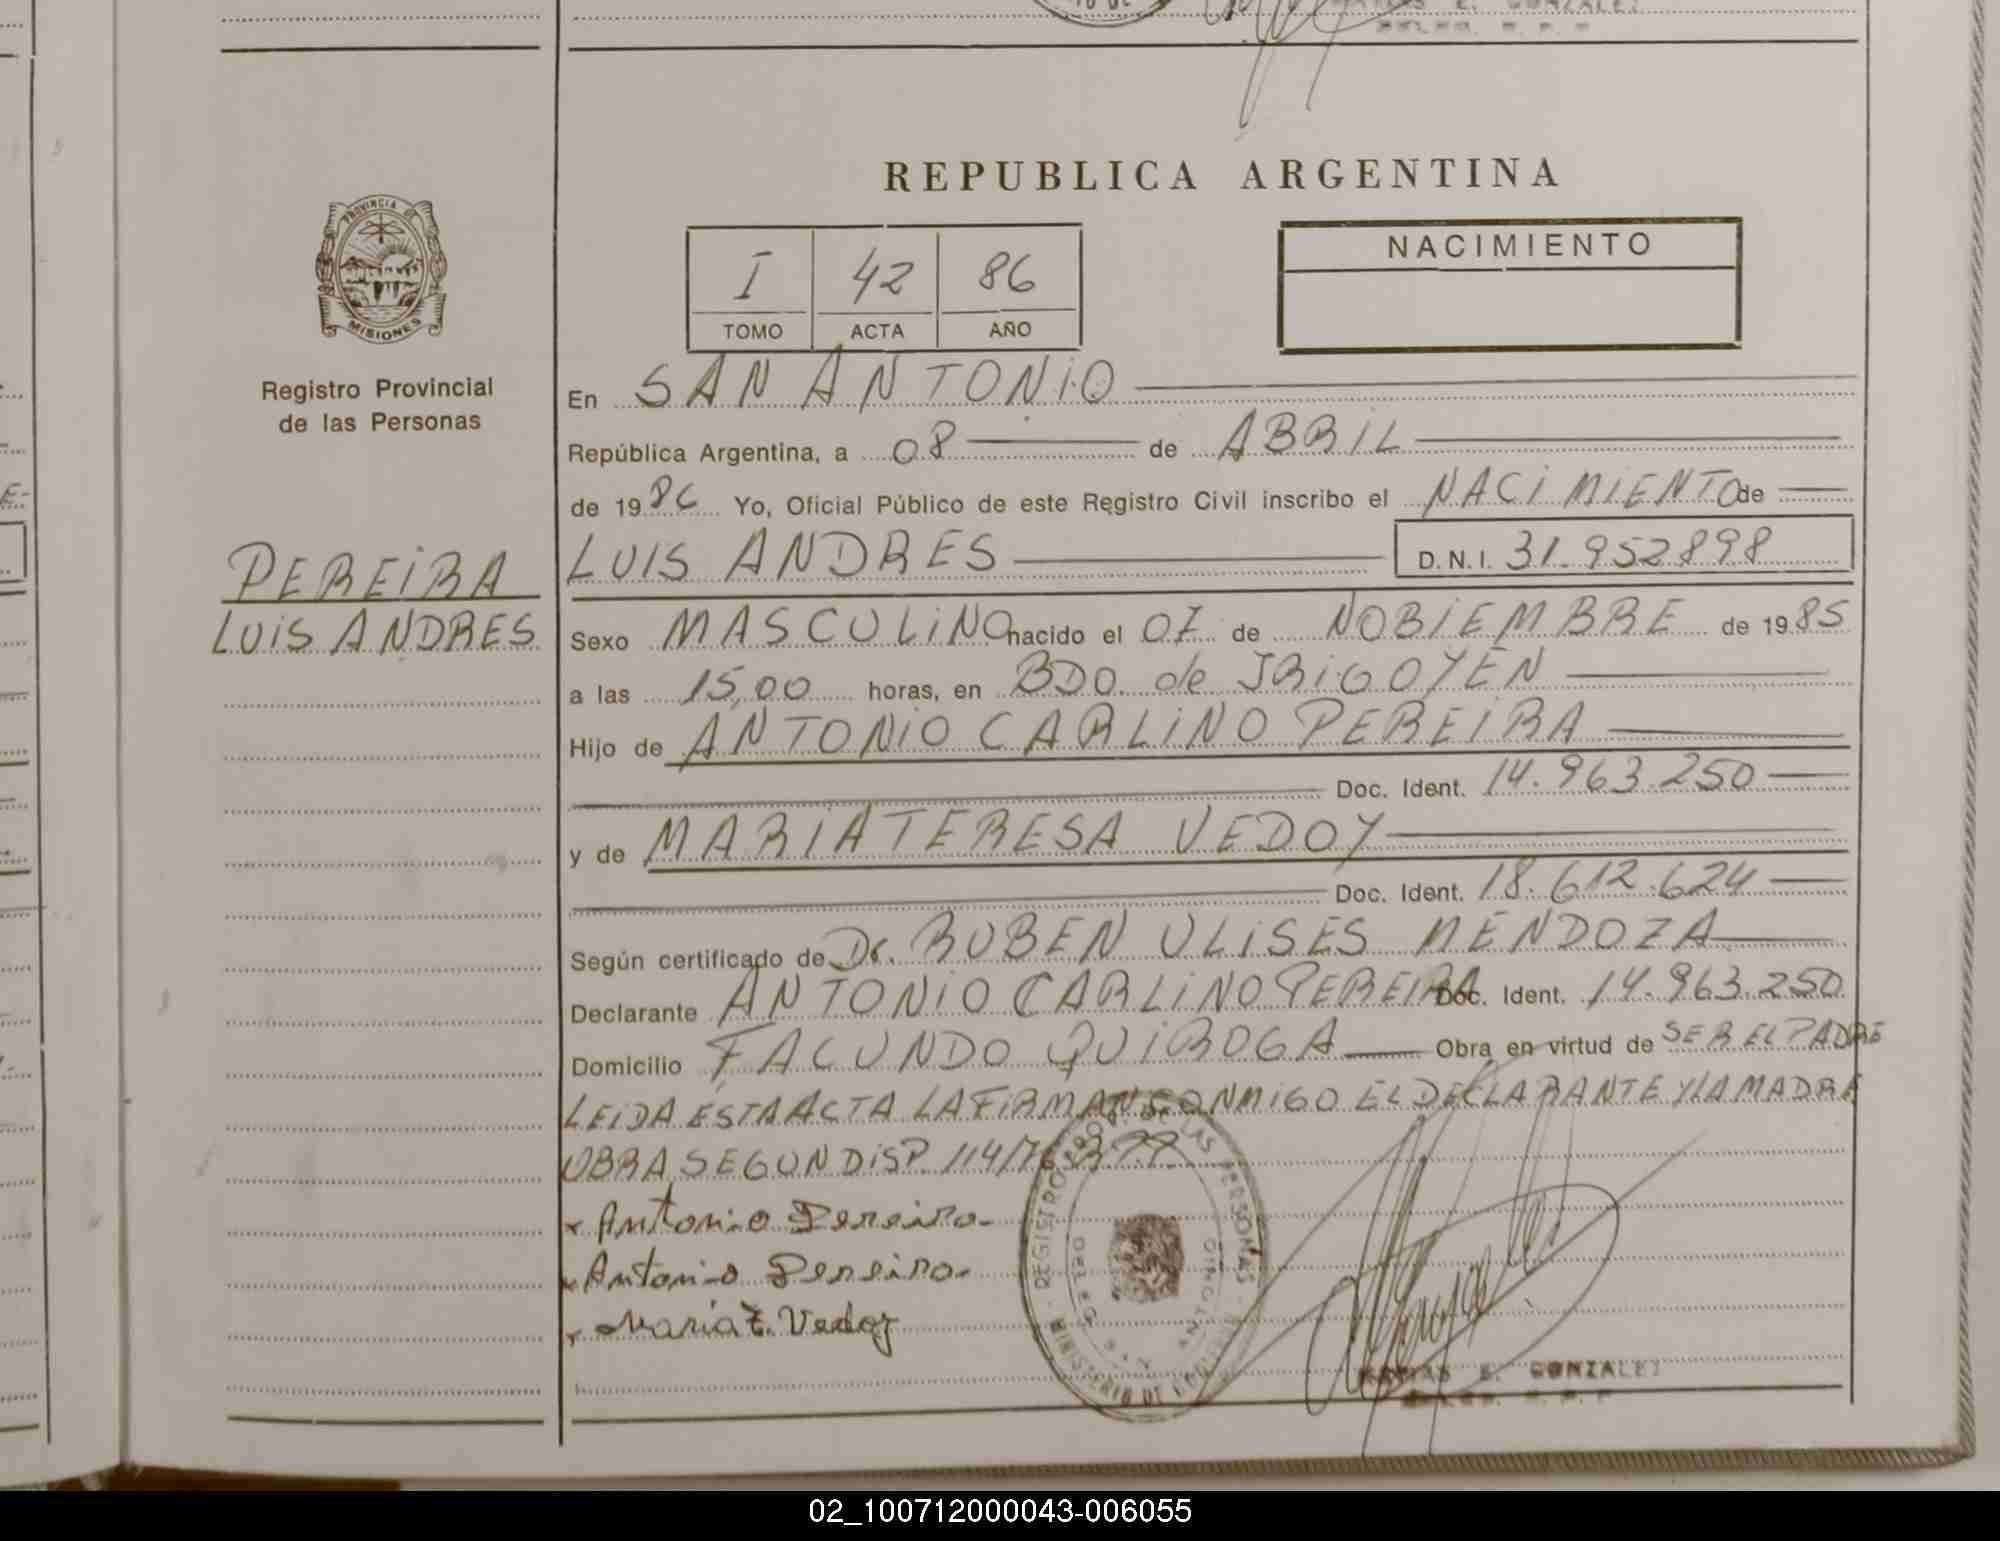 REPUBLICA ARGENTINA
PROVINCIA DE
MISIONES
Registro Provincial
de las Personas
I 42 86
TOMO ACTA AÑO
NACIMIENTO
En SAN ANTONIO
República Argentina, a 08 de ABRIL
de 1986 Yo, Oficial Público de este Registro Civil inscribo el NACIMIENTO de
PEREIRA
LUIS ANDRES
LUIS ANDRES D.N.I. 31.952898
Sexo MASCULINO nacido el 07 de NOBIEMBRE de 1985
a las 15,00 horas, en BDO. de IRIGOYEN
Hijo de ANTONIO CARLINO PEREIRA
Doc. Ident. 14.963.250
y de MARIA TERESA VEDOY
Doc. Ident. 18.612.624
Según certificado de Dr. RUBEN ULISES MENDOZA
Declarante ANTONIO CARLINO PEREIRA Doc. Ident. 14.963.250
Domicilio FACUNDO QUIROGA Obra en virtud de SER EL PADRE
LEIDA ESTA ACTA LA FIRMAN CONMIGO EL DECLARANTE Y LA MADRE
OBRA SEGUN DISP. 114/76
x Antonio Pereira
x Antonio Pereira
x Maria t. Vedoy
REGISTRO PROV. DE LAS PERSONAS
MINISTERIO DE
SAN ANTONIO
E. GONZALEZ
02_100712000043-006055